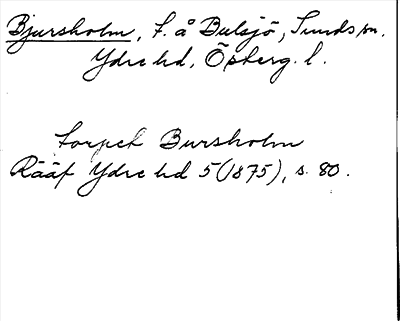 Bjursholm, f. å Bulsjö, Sunds sn.
Ydre hd, Östergl.
torpet Bursholm
Rääf Ydre hd 5 (1875), s. 80.